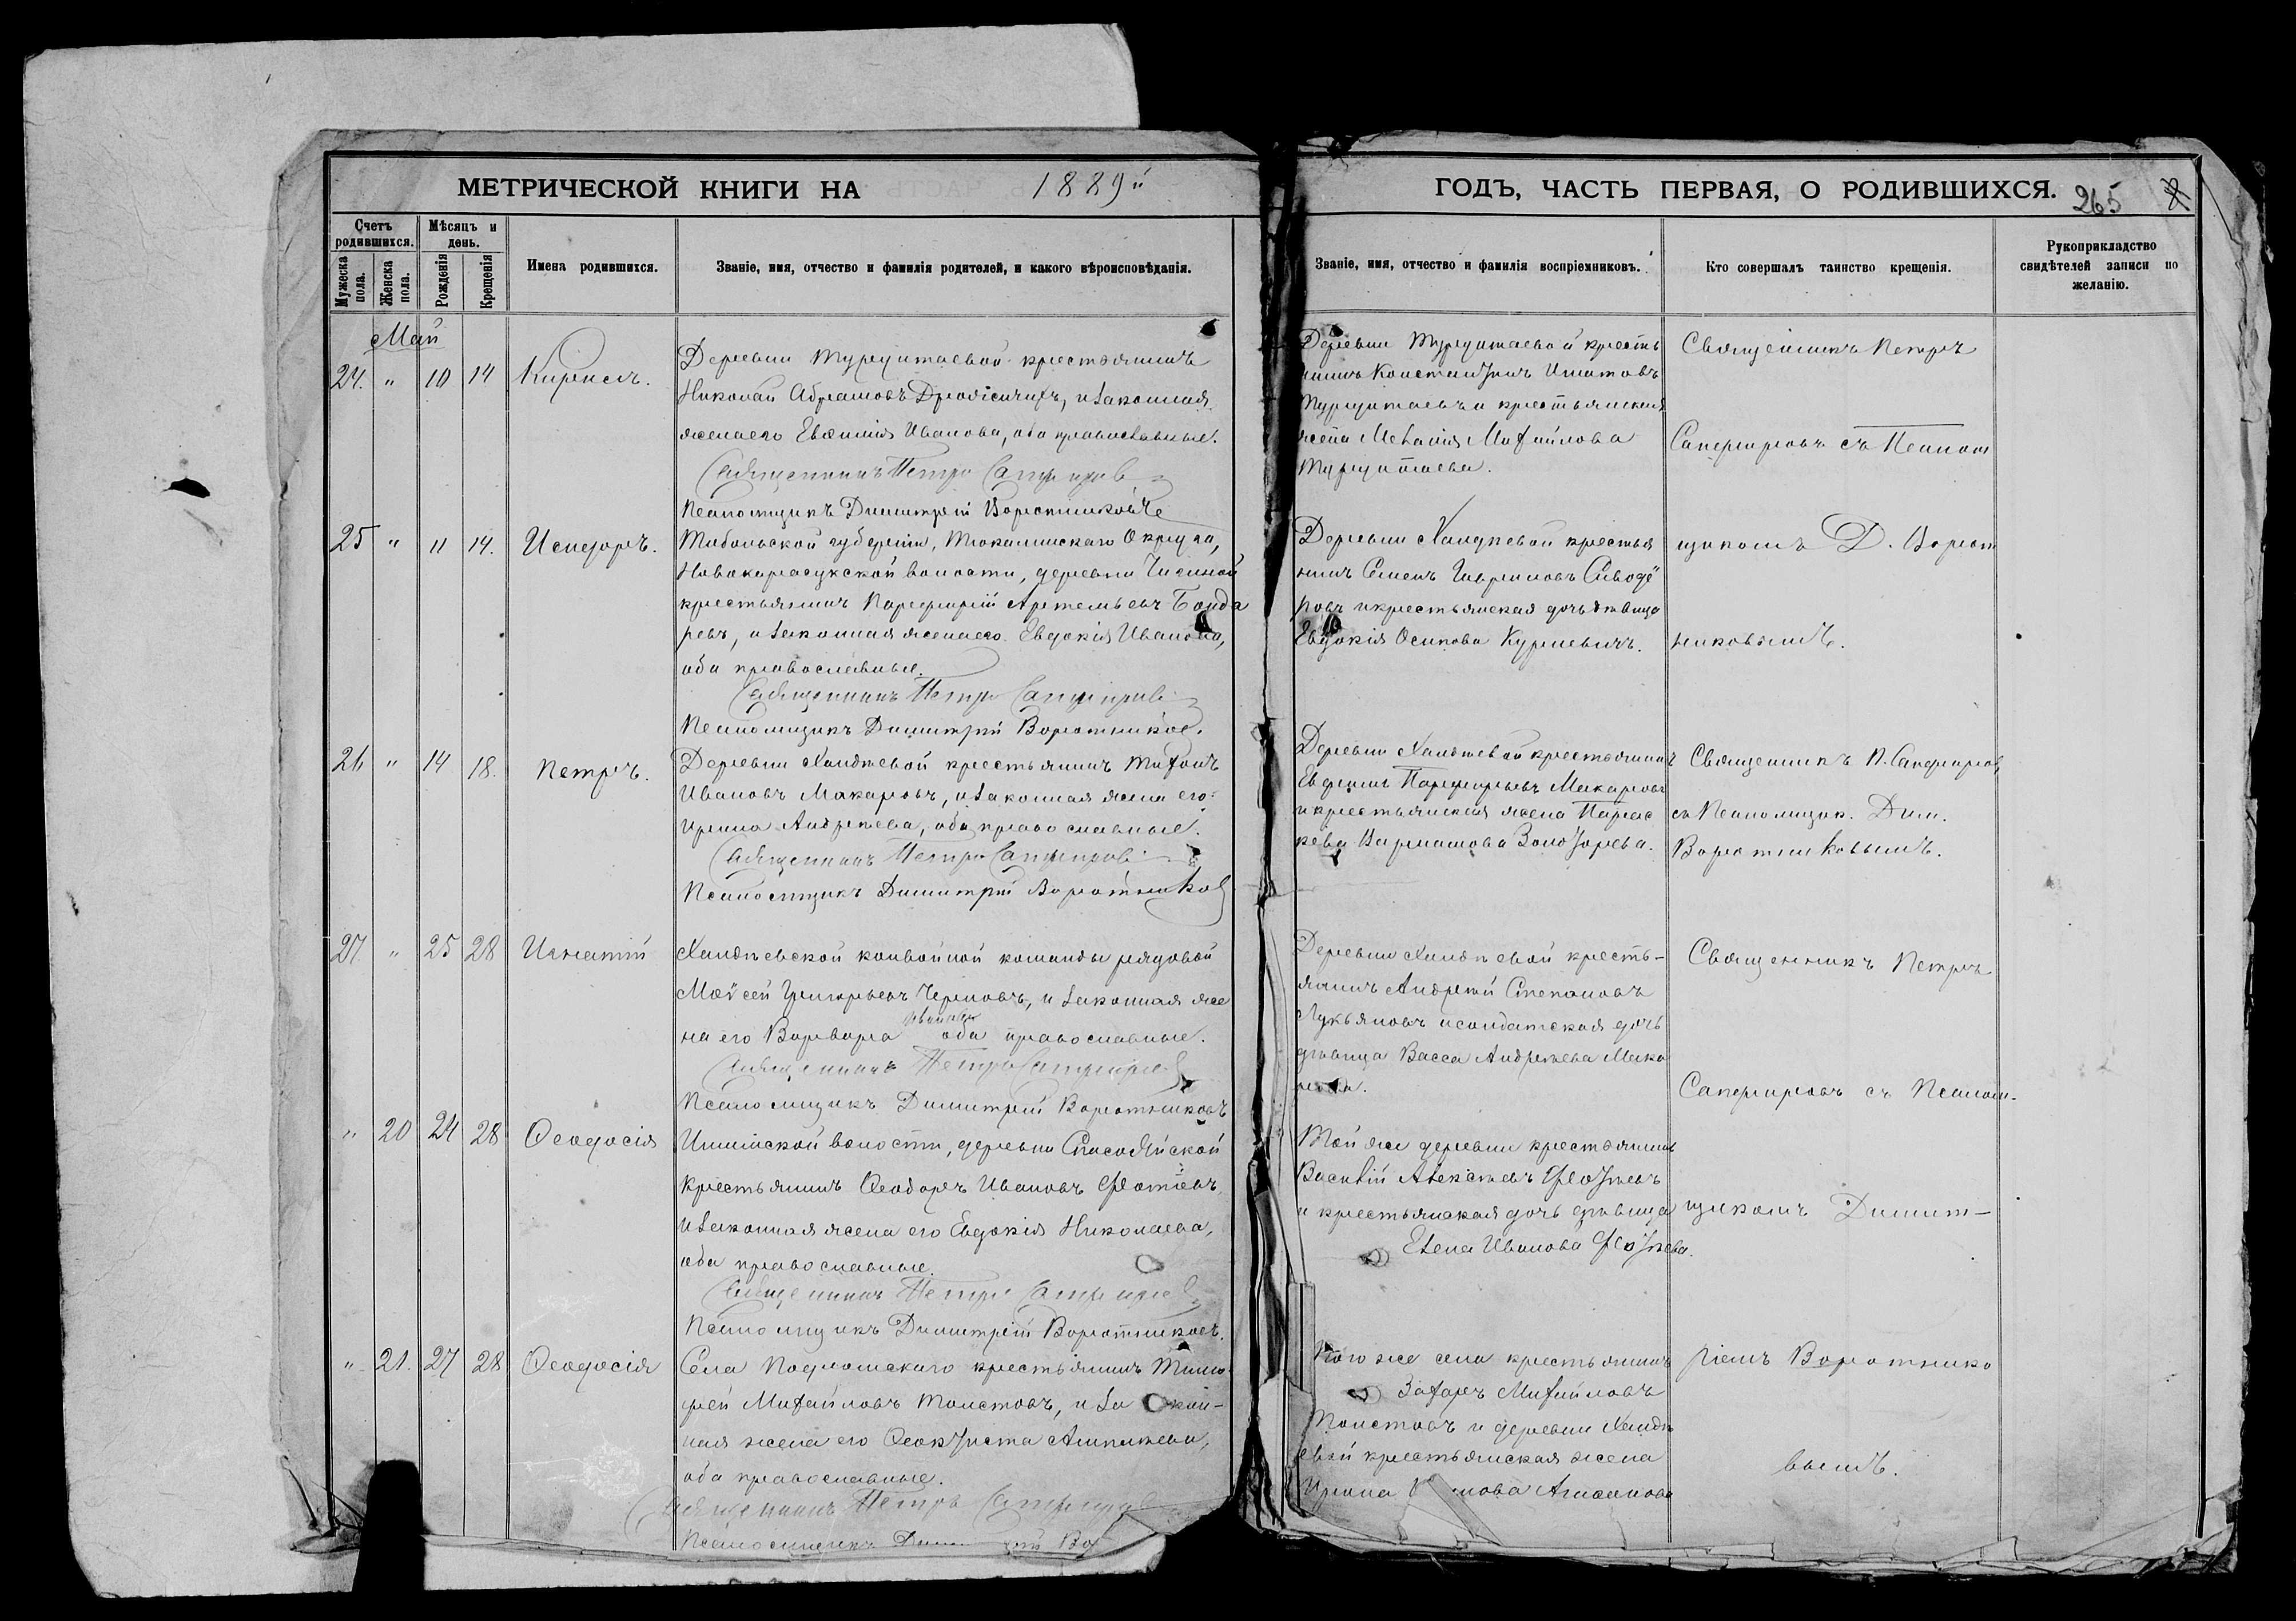 МЕТРИЧЕСКОЙ КНИГИ НА 1889й
ГОДЪ, ЧАСТЬ ПЕРВАЯ, О РОДИВШИХСЯ. 265
Счетъ родившихся.
Мужеска пола.
Женска пола.
Мѣсяцъ и день.
Рожденія
Крещенія
Имена родившихся.
Званіе, имя, отчество и фамилія родителей, и какого вѣроисповѣданія.
Званіе, имя, отчество и фамилія воспріемниковъ.
Кто совершалъ таинство крещенія.
Рукоприкладство свидѣтелей записи по желанію.
Май
24. " 10 14 Кириллъ.
Деревни Турушаевой крестьянинъ
Николай Абрамовъ, и законная
жена его Евѳимія Иванова, оба православные.
Священникъ Петръ Сапфировъ
Псаломщикъ Димитрій Воротниковъ
Деревни крестья
нинъ Константинъ Игнатовъ
и крестьянская
жена Меланія Михайлова
Священникъ Петръ
Сапфировъ съ Псалом
25 " 11 14. Исидоръ.
Тобольской губерніи, Тюкалинскаго Округа,
Новокарасукской волости, деревни
крестьянинъ Парфирій Артемьевъ Бонда
ревъ, и законная жена его Евдокія Иванова,
оба православные.
Священникъ Петръ Сапфировъ
Псаломщикъ Димитрій Воротниковъ.
Деревни Хандѣевой крестья
нинъ Семенъ Гавриловъ
и крестьянская дочь дѣвица
Евдокія Осипова Куриевичъ.
щикомъ Д. Ворот
никовымъ.
26 " 14 18. Петръ.
Деревни Хандѣевой крестьянинъ Тихонъ
Ивановъ Макаровъ, и законная жена его
Ирина Андреева, оба православные.
Священникъ Петръ Сапфировъ
Псаломщикъ Димитрій Воротниковъ
Деревни Хандѣевой крестьянинъ
Парфирьевъ Макаровъ
и крестьянская жена Парас
кева Варламова Золотарева.
Священникъ П. Сапфировъ
съ Псаломщик. Дим.
Воротниковымъ.
27. " 25 28 Игнатій
Хандѣевской конвойной команды рядовой
Моѵсей Григорьевъ Черновъ, и законная же
на его Варвара Иванова оба православные.
Священникъ Петръ Сапфировъ
Псаломщикъ Димитрій Воротниковъ
Деревни Хандѣевой кресть-
янинъ Андрей Степановъ
Лукьяновъ и солдатская дочь
дѣвица Васса Андреева
Священникъ Петръ
Сапфировъ съ Псалом-
" 20 24 28 Ѳеодосія
волости, деревни
крестьянинъ Ѳеодоръ Ивановъ
и законная жена его Евдокія Николаева,
оба православные.
Священникъ Петръ Сапфировъ
Псаломщикъ Димитрій Воротниковъ.
Той же деревни крестьянинъ
Василій Алексѣевъ
и крестьянская дочь дѣвица
Елена Иванова
щикомъ Димит-
" 21. 27 28 Ѳеодосія
Села крестьянинъ Тимо
фей Михайловъ Толстовъ, и закон-
ная жена его Ѳеоктиста
оба православные.
Священникъ Петръ Сапфировъ
Псаломщикъ
Того же села крестьянинъ
Захаръ Михайловъ
Толстовъ и деревни Хандѣ
евой крестьянская жена
Ирина
ріемъ Воротнико
вымъ.